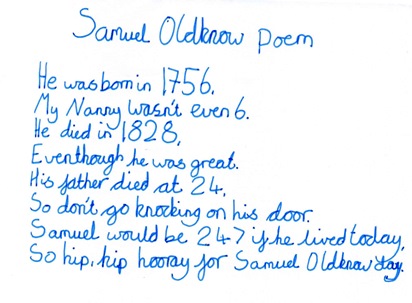 Samuel Oldknow Poem
He was born in 1756.
My Nanny wasn't even 6.
He died in 1828,
Eventhough he was great.
His father died at 24,
So don't go knocking on his door.
Samuel would be 247 if he lived today,
So hip, hip hooray for Samuel Oldknow day.